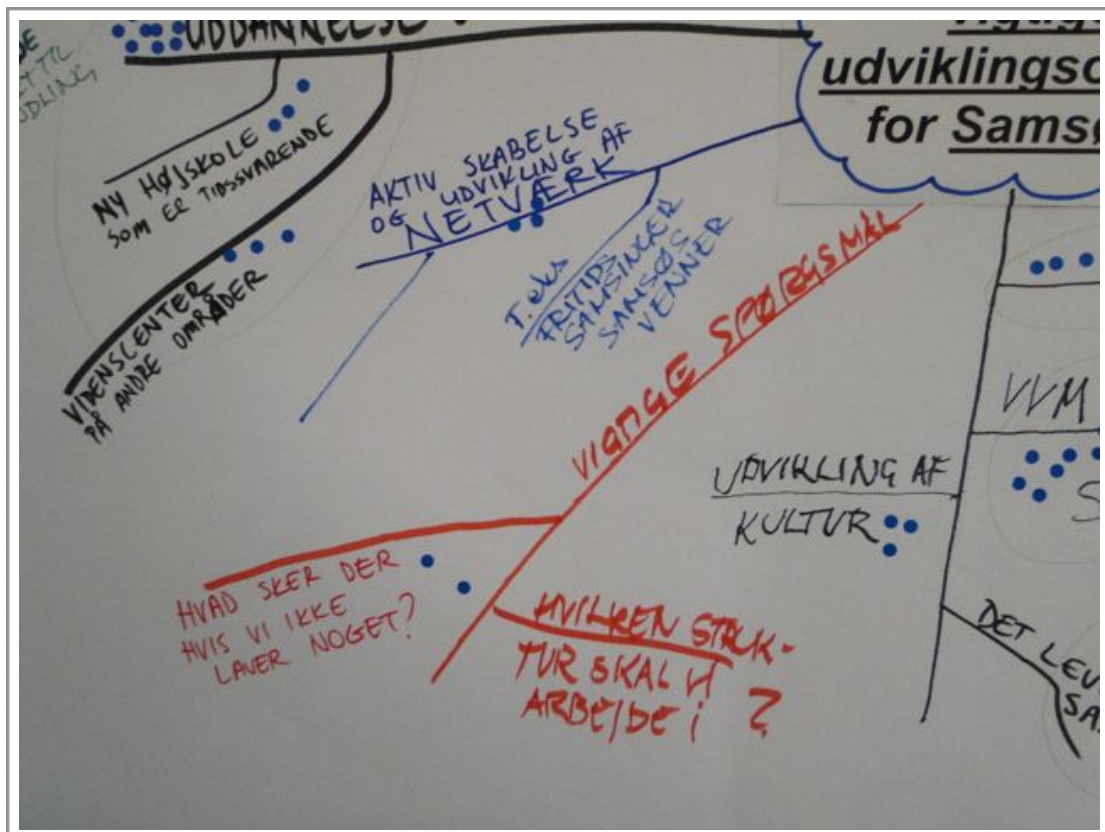 UDDANNELSE
udviklingso
for Samsø
NY HØJSKOLE
SOM ER TIDSSVARENDE
VIDENSCENTER
PÅ ANDRE OMRÅDER
AKTIV SKABELSE
OG UDVIKLING AF
NETVÆRK
F.eks
FRITIDS
SAMSINGER
SAMSØS
VENNER
VIGTIGE SPØRGSMÅL
HVAD SKER DER
HVIS VI IKKE
LAVER NOGET?
HVILKEN STRUK-
TUR SKAL VI
ARBEJDE i ?
UDVIKLING AF
KULTUR
VVM
S
DET LEV
SA